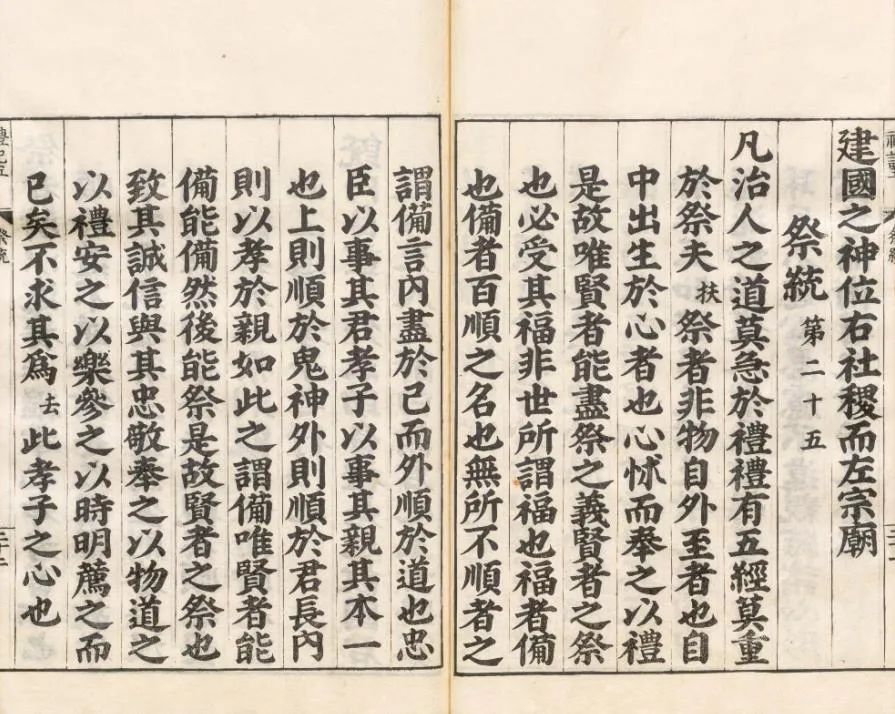 建國之神位右社稷而左宗廟
祭統 第二十五
凡治人之道莫急於禮禮有五經莫重
於祭夫扶祭者非物自外至者也自
中出生於心者也心怵而奉之以禮
是故唯賢者能盡祭之義賢者之祭
也必受其福非世所謂福也福者備
也備者百順之名也無所不順者之
謂備言內盡於己而外順於道也忠
臣以事其君孝子以事其親其本一
也上則順於鬼神外則順於君長內
則以孝於親如此之謂備唯賢者能
備能備然後能祭是故賢者之祭也
致其誠信與其忠敬奉之以物道之
以禮安之以樂參之以時明薦之而
已矣不求其爲去此孝子之心也
祭統